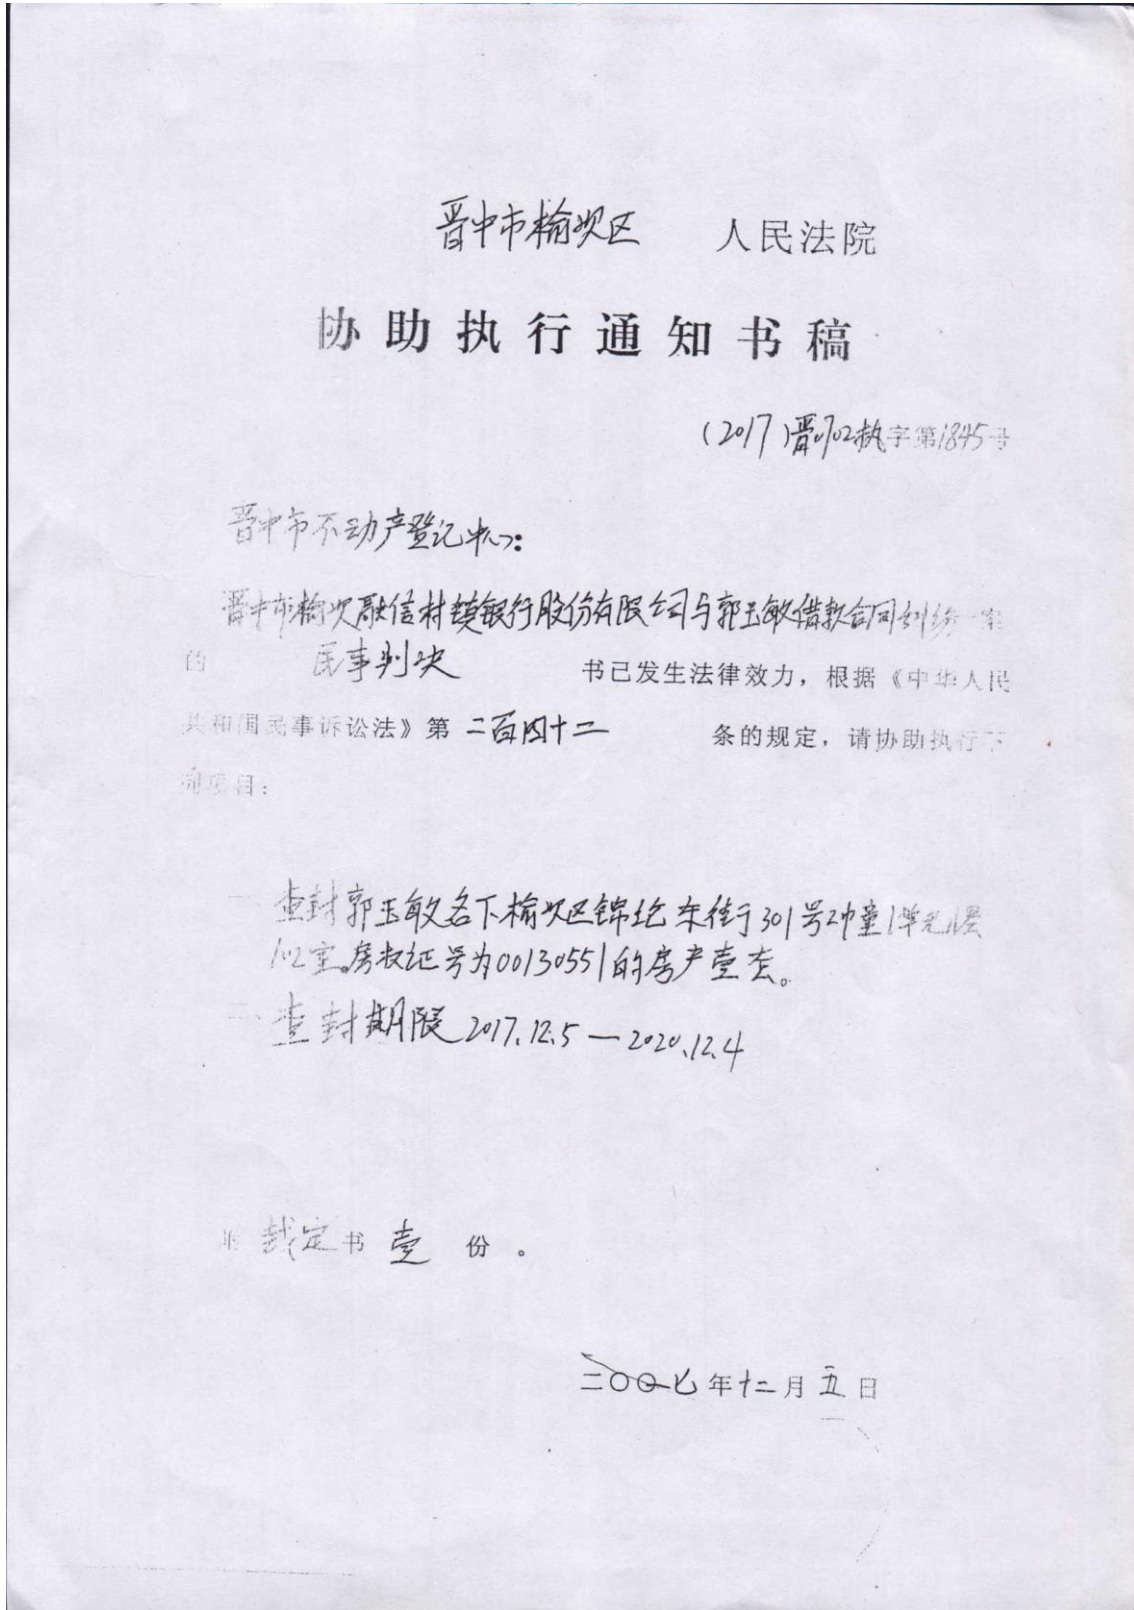 晋中市榆次区 人民法院
协助执行通知书稿
(2017)晋0702执字第1845号
晋中市不动产登记中心:
晋中市榆次融信村镇银行股份有限公司与郭玉敏借款合同纠纷一案
的 民事判决 书已发生法律效力，根据《中华人民
共和国民事诉讼法》第 二百四十二 条的规定，请协助执行下
列项目：
一、查封郭玉敏名下榆次区锦纶东街301号2幢1单元1层
102室。房权证号为00130551的房产壹套。
二、查封期限2017.12.5—2020.12.4
附 裁定 书 壹 份。
二〇〇七年十二月五日